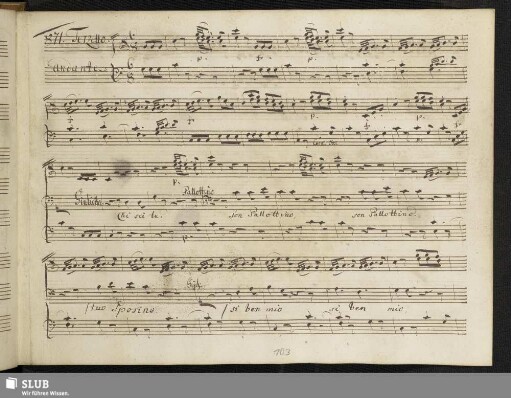 Terzetto
Andante
p. f. p.
f. p. f. p. f.
p.
Pallottino
Giulietta
Chi sei tu. son Pallottino son Pallottino.
p.
Giul.
tuo Sposino si ben mio si ben mio
103
SLUB
Wir führen Wissen.